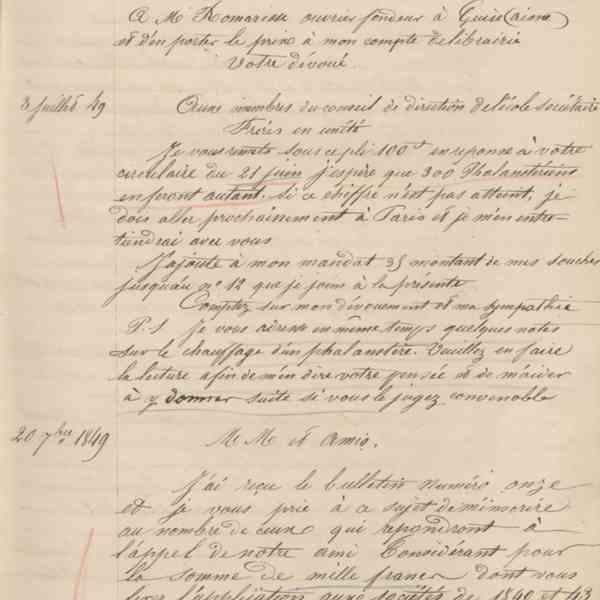 A Mr Romarisse ouvrier fondeur à Guise (aisne)
et d'en porter le prix à mon compte de librairie
Votre dévoué
3 juillet 49 Aux membres du conseil de direction de l'école Sociétaire
Frères en unité
Je vous remets sous ce pli 100f en reponse à votre
circulaire du 21 juin j'espère que 300 Phalanstériens
en feront autant. Si ce chiffre n'est pas atteint, je
dois aller prochainement à Paris et je m'en entre-
tiendrai avec vous
J'ajoute à mon mandat 35 montant de mes souches
jusqu'au no 12 que je joins à la présente
Comptez sur mon dévouement et ma sympathie
P.S Je vous adresse en même temps quelques notes
sur le chauffage d'un phalanstère. Veuillez en faire
la lecture afin de m'en dire votre pensée et de m'aider
à y donner suite si vous le jugez convenable
20 7bre 1849 M M et Amis.
J'ai reçu le bulletin numéro onze
et je vous prie à ce sujet de m'inscrire
au nombre de ceux qui repondront à
l'appel de notre ami Considérant pour
la somme de mille francs dont vous
ferez l'application aux sociétés de 1840 et 43